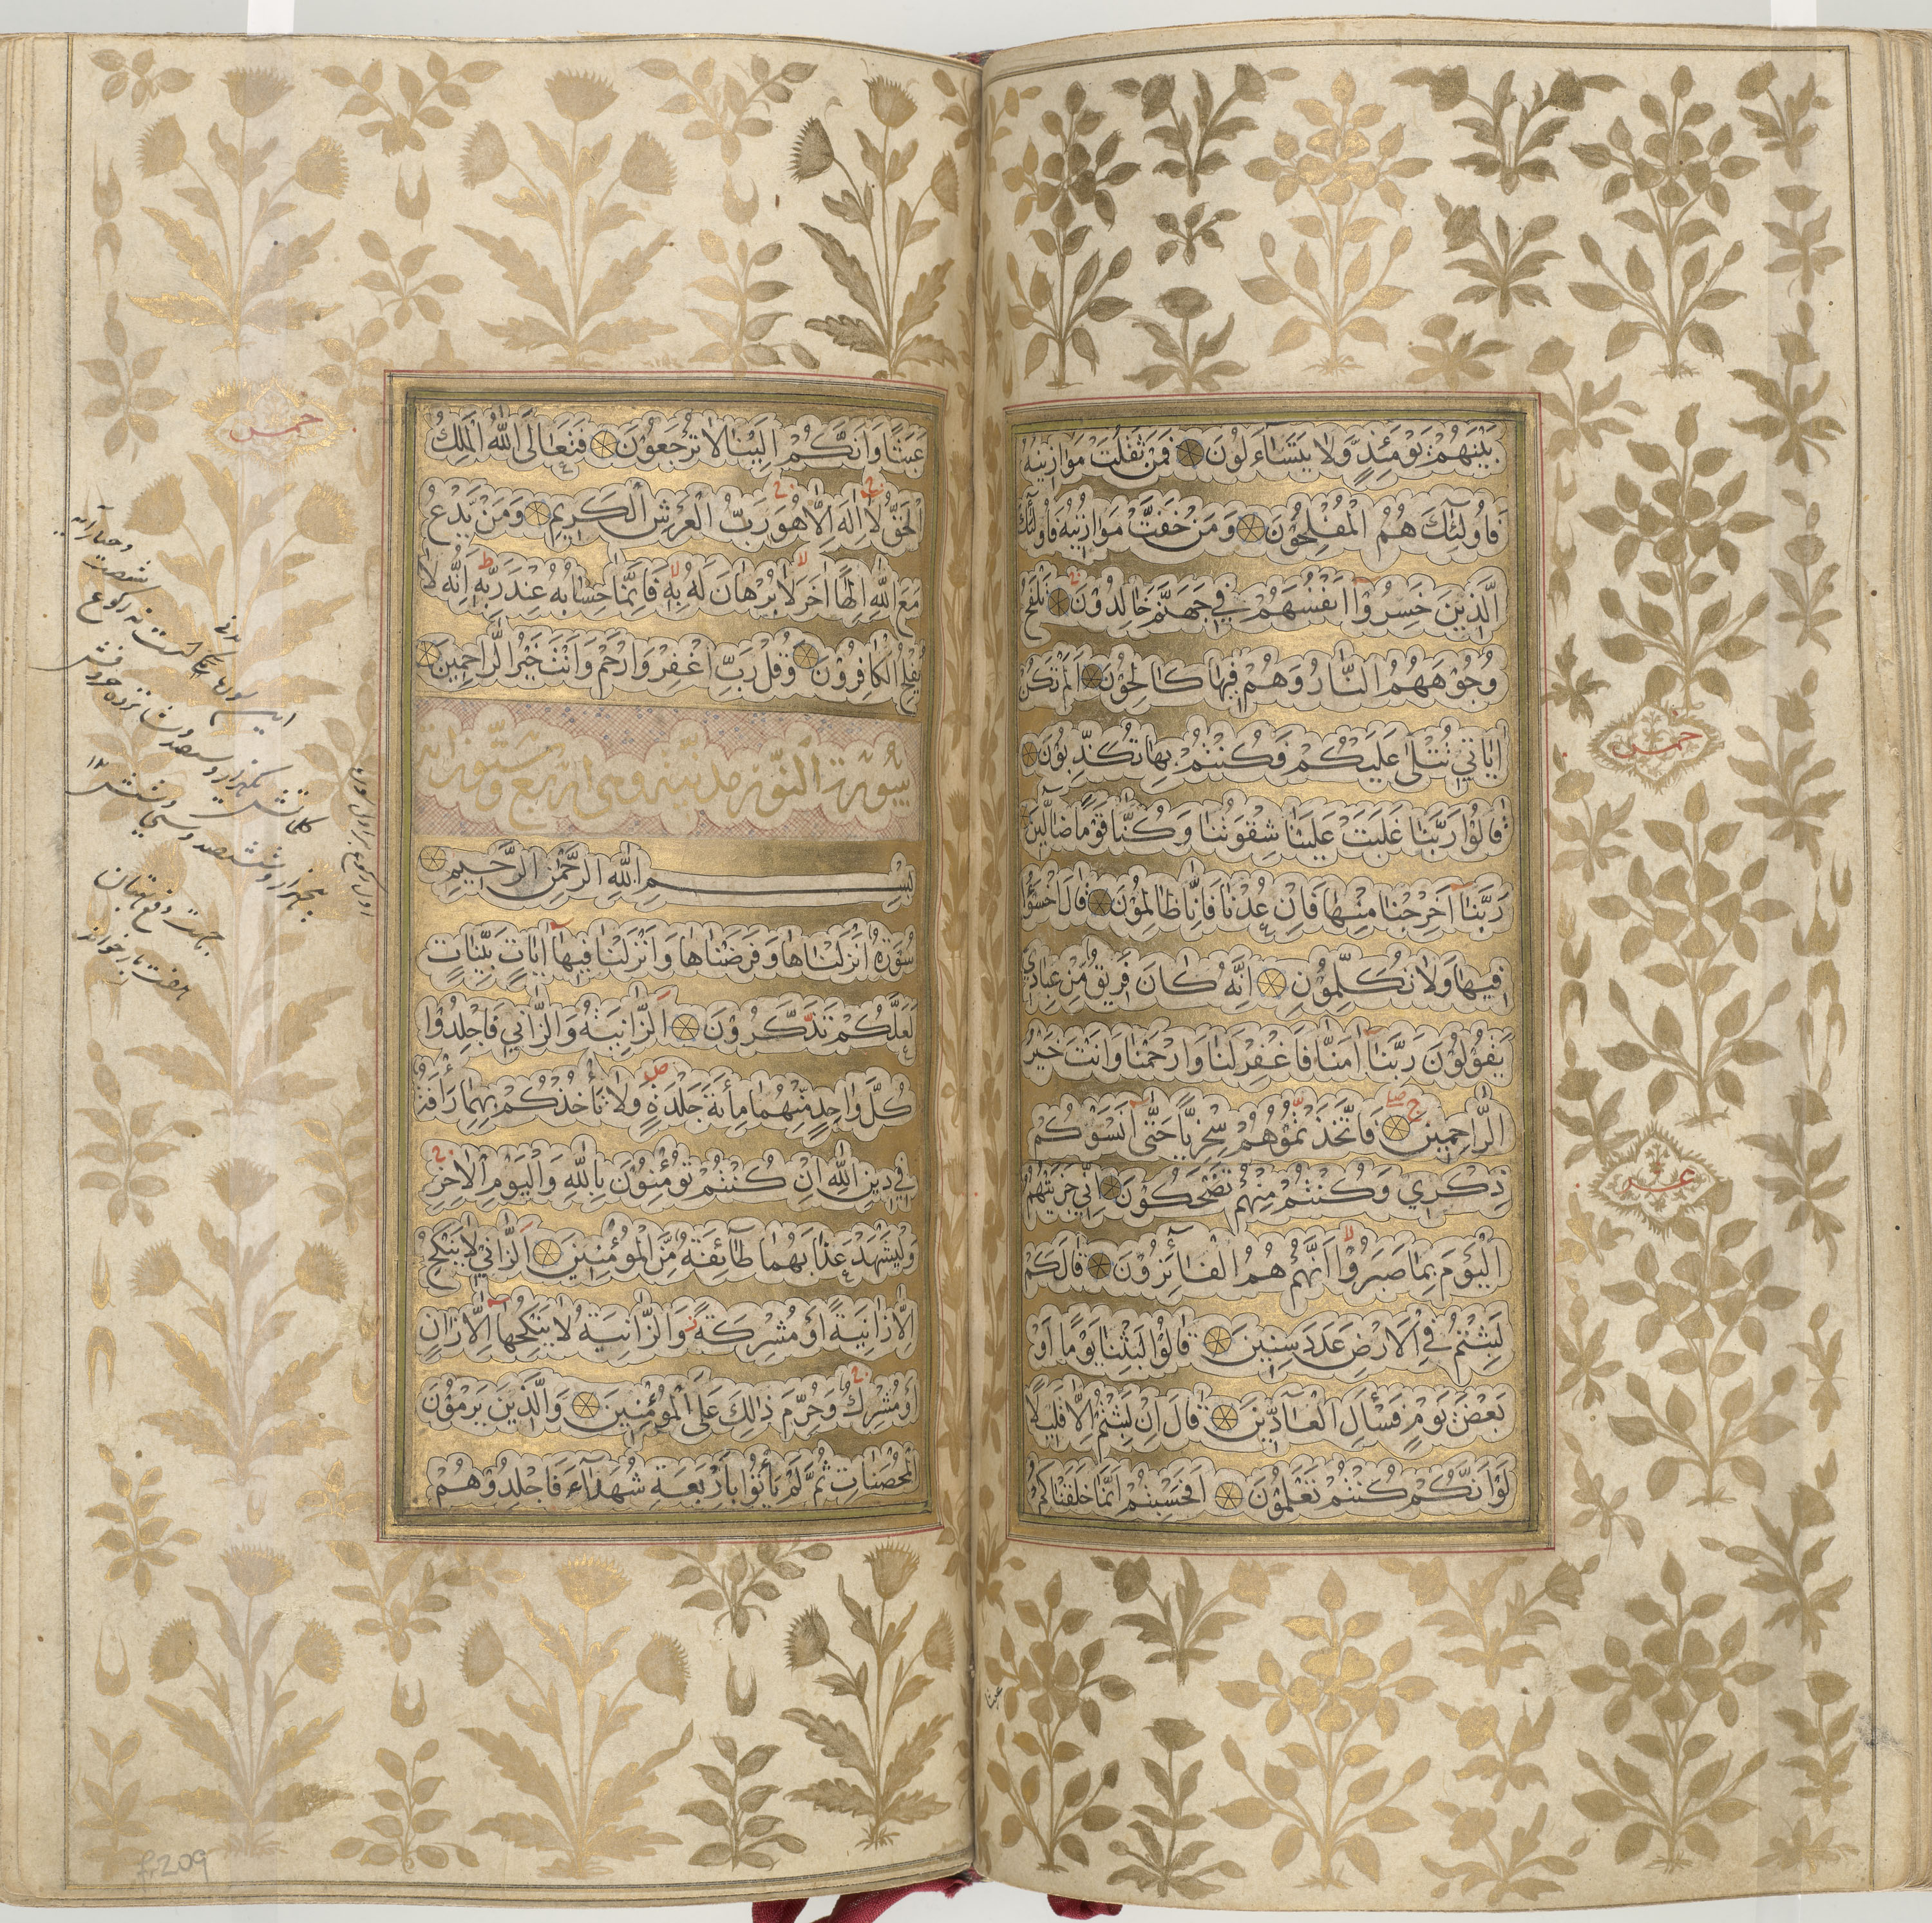 بَيْنَهُمْ يَوْمَئِذٍ وَلَا يَتَسَآءَلُوْنَ فَمَنْ ثَقُلَتْ مَوَازِينُهُ
فَاُولٰٓئِكَ هُمُ الْمُفْلِحُوْنَ وَمَنْ خَفَّتْ مَوَازِينُهُ فَاُولٰٓئِكَ
الَّذِينَ خَسِرُوْٓا اَنْفُسَهُمْ فِي جَهَنَّمَ خَالِدُوْنَ تَلْفَحُ
وُجُوْهَهُمُ النَّارُ وَهُمْ فِيْهَا كَالِحُوْنَ اَلَمْ تَكُنْ
اٰيَاتِي تُتْلٰى عَلَيْكُمْ فَكُنْتُمْ بِهَا تُكَذِّبُوْنَ
قَالُوْا رَبَّنَا غَلَبَتْ عَلَيْنَا شِقْوَتُنَا وَكُنَّا قَوْمًا ضَآلِّيْنَ
رَبَّنَآ اَخْرِجْنَا مِنْهَا فَاِنْ عُدْنَا فَاِنَّا ظَالِمُوْنَ قَالَ اخْسَؤُا
فِيْهَا وَلَا تُكَلِّمُوْنِ اِنَّهُ كَانَ فَرِيْقٌ مِنْ عِبَادِي
يَقُوْلُوْنَ رَبَّنَآ اٰمَنَّا فَاغْفِرْ لَنَا وَارْحَمْنَا وَاَنْتَ خَيْرُ
الرَّاحِمِيْنَ فَاتَّخَذْتُمُوْهُمْ سِخْرِيًّا حَتّٰٓى اَنْسَوْكُمْ
ذِكْرِي وَكُنْتُمْ مِنْهُمْ تَضْحَكُوْنَ اِنِّي جَزَيْتُهُمُ
الْيَوْمَ بِمَا صَبَرُوْٓا اَنَّهُمْ هُمُ الْفَآئِزُوْنَ قَالَ كَمْ
لَبِثْتُمْ فِي الْاَرْضِ عَدَدَ سِنِيْنَ قَالُوْا لَبِثْنَا يَوْمًا اَوْ
بَعْضَ يَوْمٍ فَسْأَلِ الْعَآدِّيْنَ قَالَ اِنْ لَبِثْتُمْ اِلَّا قَلِيْلًا
لَوْ اَنَّكُمْ كُنْتُمْ تَعْلَمُوْنَ اَفَحَسِبْتُمْ اَنَّمَا خَلَقْنَاكُمْ
خمس
عشر
عبثا
عَبَثًا وَاَنَّكُمْ اِلَيْنَا لَا تُرْجَعُوْنَ فَتَعَالَى اللّٰهُ الْمَلِكُ
الْحَقُّ لَآ اِلٰهَ اِلَّا هُوَ رَبُّ الْعَرْشِ الْكَرِيْمِ وَمَنْ يَدْعُ
مَعَ اللّٰهِ اِلٰهًا اٰخَرَ لَا بُرْهَانَ لَهُ بِهِ فَاِنَّمَا حِسَابُهُ عِنْدَ رَبِّهِ اِنَّهُ لَا
يُفْلِحُ الْكَافِرُوْنَ وَقُلْ رَبِّ اغْفِرْ وَارْحَمْ وَاَنْتَ خَيْرُ الرَّاحِمِيْنَ
سورة النور مدنية وهى اربع وستون اية
بِسْمِ اللّٰهِ الرَّحْمٰنِ الرَّحِيْمِ
سُوْرَةٌ اَنْزَلْنَاهَا وَفَرَضْنَاهَا وَاَنْزَلْنَا فِيْهَآ اٰيَاتٍ بَيِّنَاتٍ
لَعَلَّكُمْ تَذَكَّرُوْنَ اَلزَّانِيَةُ وَالزَّانِي فَاجْلِدُوْا
كُلَّ وَاحِدٍ مِنْهُمَا مِائَةَ جَلْدَةٍ وَلَا تَأْخُذْكُمْ بِهِمَا رَأْفَةٌ
فِي دِيْنِ اللّٰهِ اِنْ كُنْتُمْ تُؤْمِنُوْنَ بِاللّٰهِ وَالْيَوْمِ الْاٰخِرِ
وَلْيَشْهَدْ عَذَابَهُمَا طَآئِفَةٌ مِّنَ الْمُؤْمِنِيْنَ اَلزَّانِي لَا يَنْكِحُ
اِلَّا زَانِيَةً اَوْ مُشْرِكَةً وَالزَّانِيَةُ لَا يَنْكِحُهَآ اِلَّا زَانٍ
اَوْ مُشْرِكٌ وَحُرِّمَ ذٰلِكَ عَلَى الْمُؤْمِنِيْنَ وَالَّذِيْنَ يَرْمُوْنَ
الْمُحْصَنَاتِ ثُمَّ لَمْ يَأْتُوْا بِاَرْبَعَةِ شُهَدَآءَ فَاجْلِدُوْهُمْ
خمس
f.209